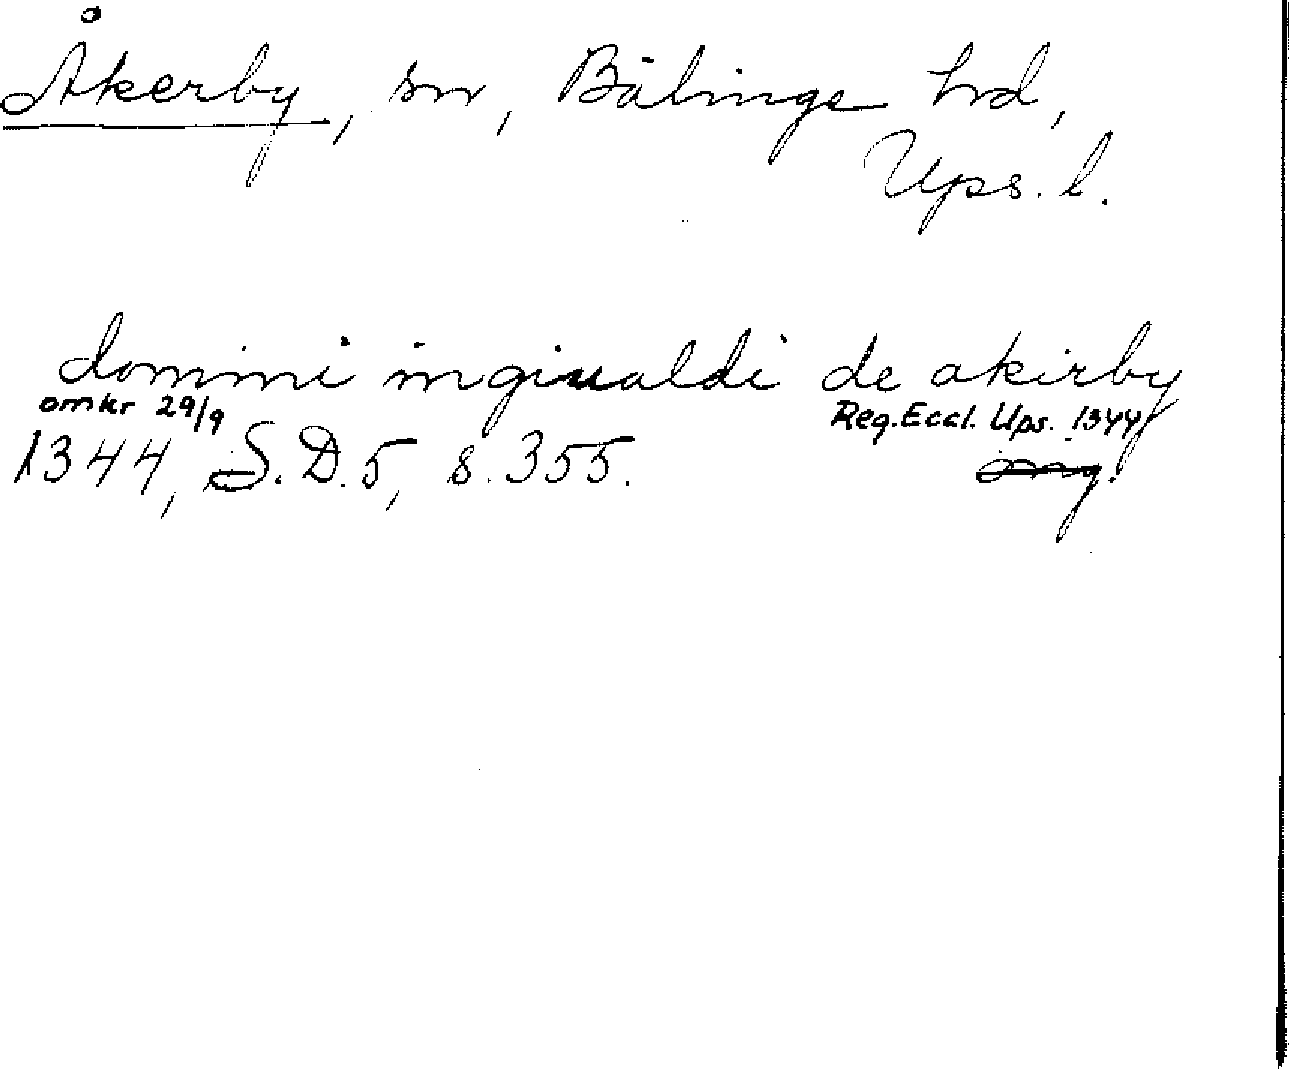 Åkerby, sn, Bälinge hd,
Ups. l.
domini ingiualdi de akirby
omkr 29/9 Reg. Eccl. Ups. 1344
1344, S.D. 5, s. 355. orig.